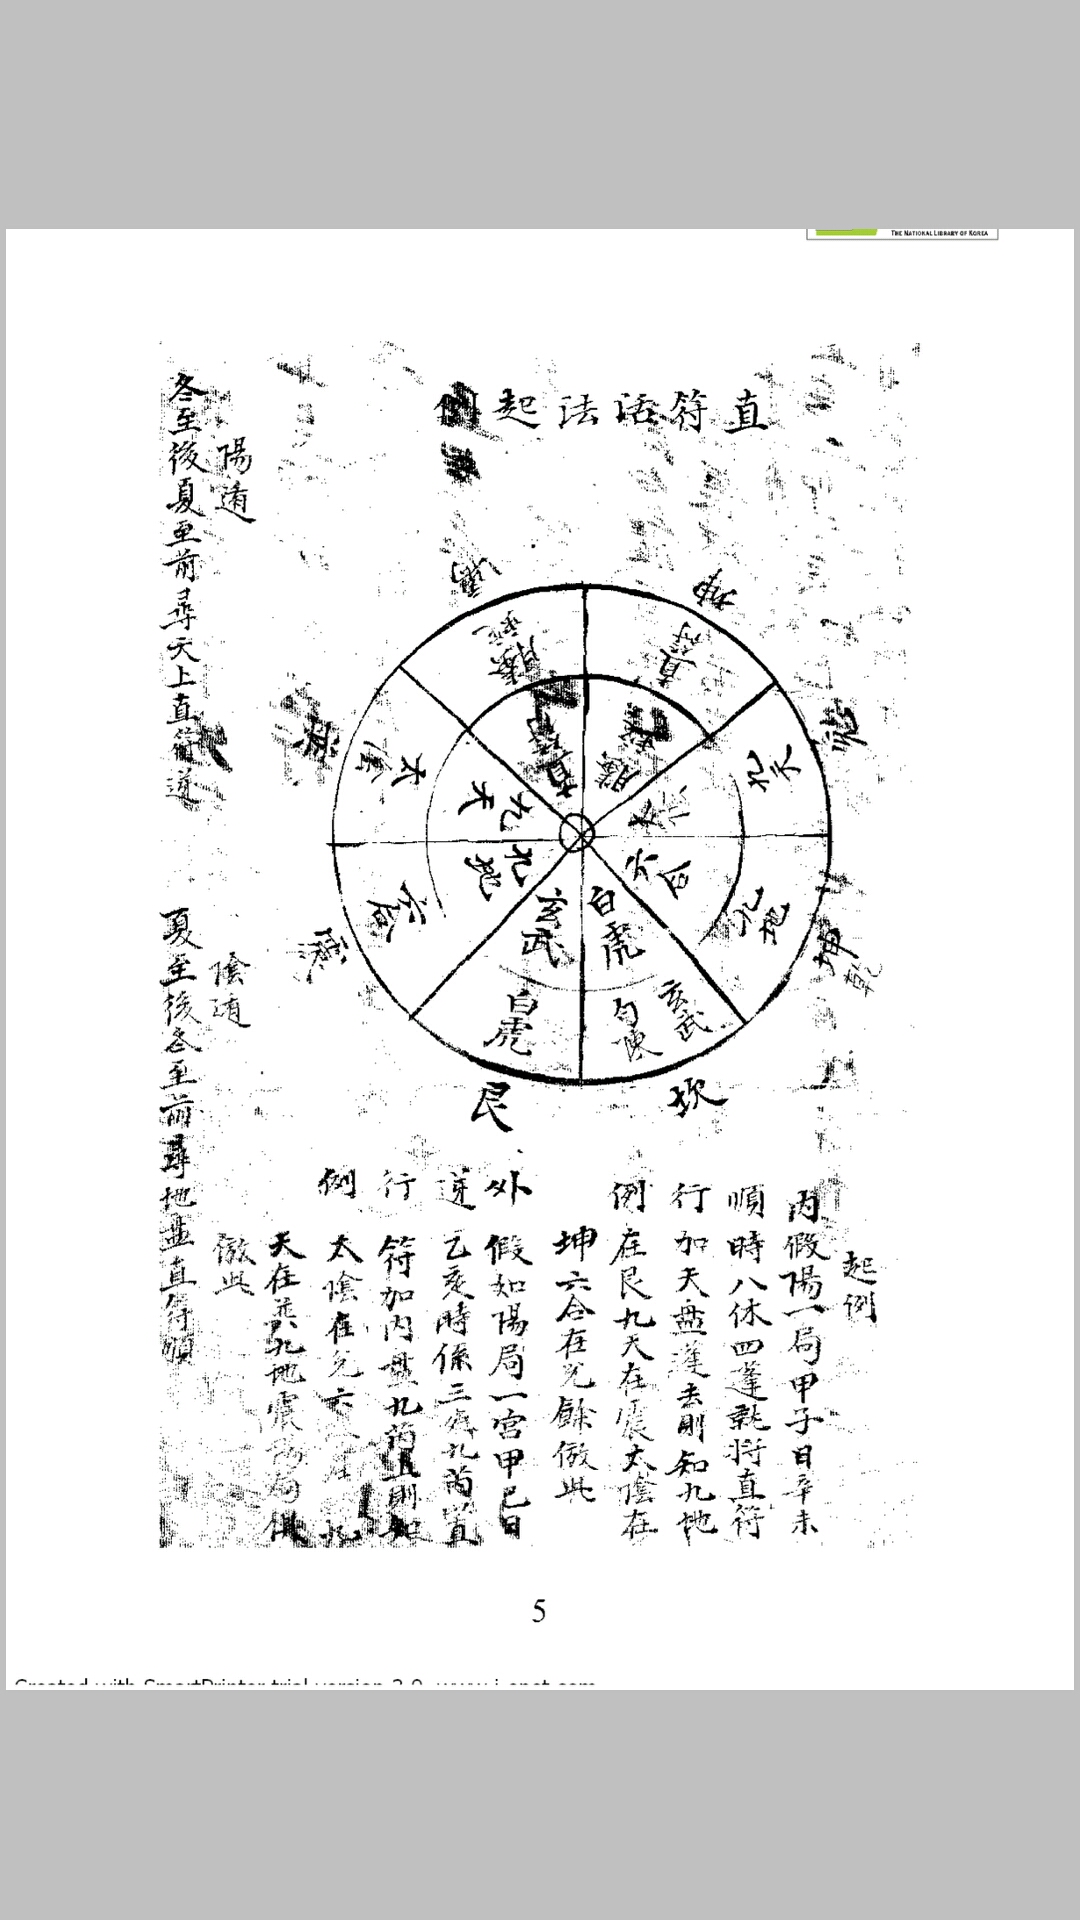 THE NATIONAL LIBRARY OF KOREA
直符活法起例
坤
直符
九天
九地
乾
玄武
勾陳
坎
白虎
艮
六合
震
太陰
巽
螣蛇
離
兌
直符
螣
太陰
六合
白虎
玄武
九地
九天
起例
內假陽一局甲子日辛未
順時八休四蓬就將直符
行加天盤蓬去則知九地
例在艮九天在震太陰在
坤六合在兌餘倣此
外假如陽局一宮甲己日
逆乙亥時係三九芮直
行符加內盤九芮直則知
例太陰在兌六
天在巽九地震局俱
倣此
陽遁
冬至後夏至前尋天上直符逆
陰遁
夏至後冬至前尋地盤直符順
5
Created with SmartPrinter trial version